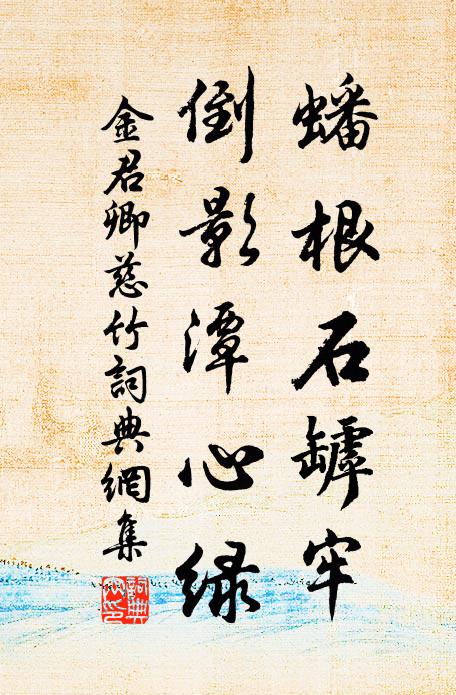 蟠根石罅牢
倒影潭心綠
金君卿慈竹詞典網集